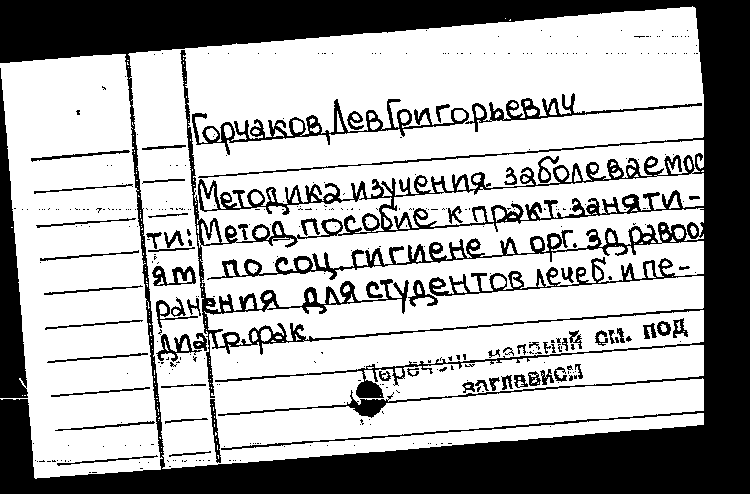 Горчаков, Лев Григорьевич
Методика изучения заболеваемос
ти: Метод. пособие к практ. заняти-
ям по соц. гигиене и орг. здравоох
ранения для студентов лечеб. и пе-
диатр. фак.
Перечень изданий см. под
заглавием